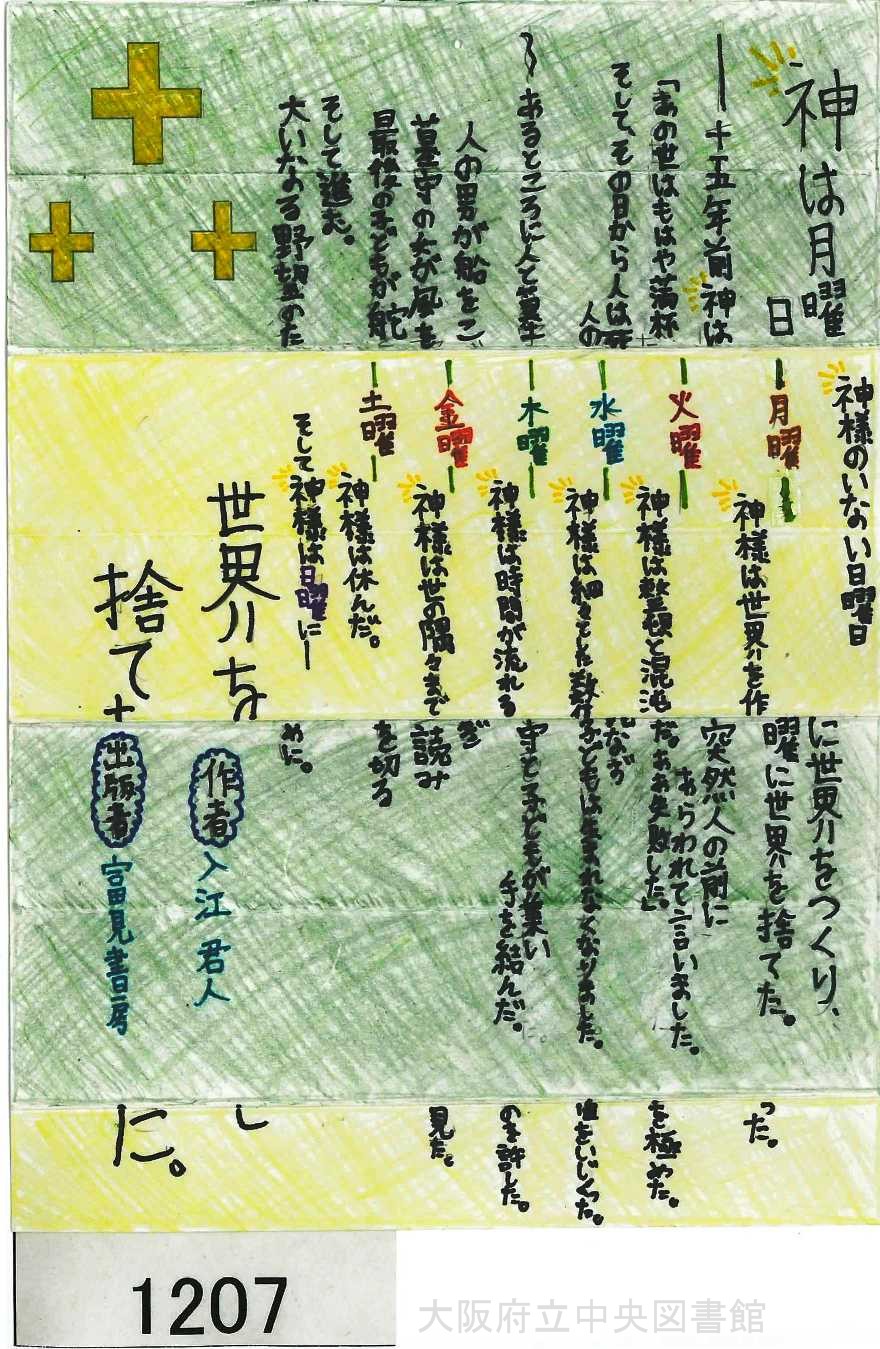 神は月曜に世界をつくり、
日曜に世界を捨てた。
―十五年前神は突然人の前に
あらわれて言いました。
「あの世はもはや満杯だ。ああ失敗した。」
そして、その日から人は死
人の子どもは生まれなくなりました。
〜あるところに人と墓守と子どもが集い
手を結んだ。
人の男が船をこぎ
墓守の女が風を読み
最後の子どもが舵を切る
そして進む。
大いなる野望のために。
神様のいない日曜日
月曜 神様は世界を作った。
火曜 神様は整頓と混沌を極めた。
水曜 神様は細々とした数値をいじくった。
木曜 神様は時間が流れるのを許した。
金曜 神様は世の隅々まで見た。
土曜 神様は休んだ。
そして神様は日曜に―
世界を
捨てた。
作者 入江 君人
出版者 富士見書房
1207
大阪府立中央図書館